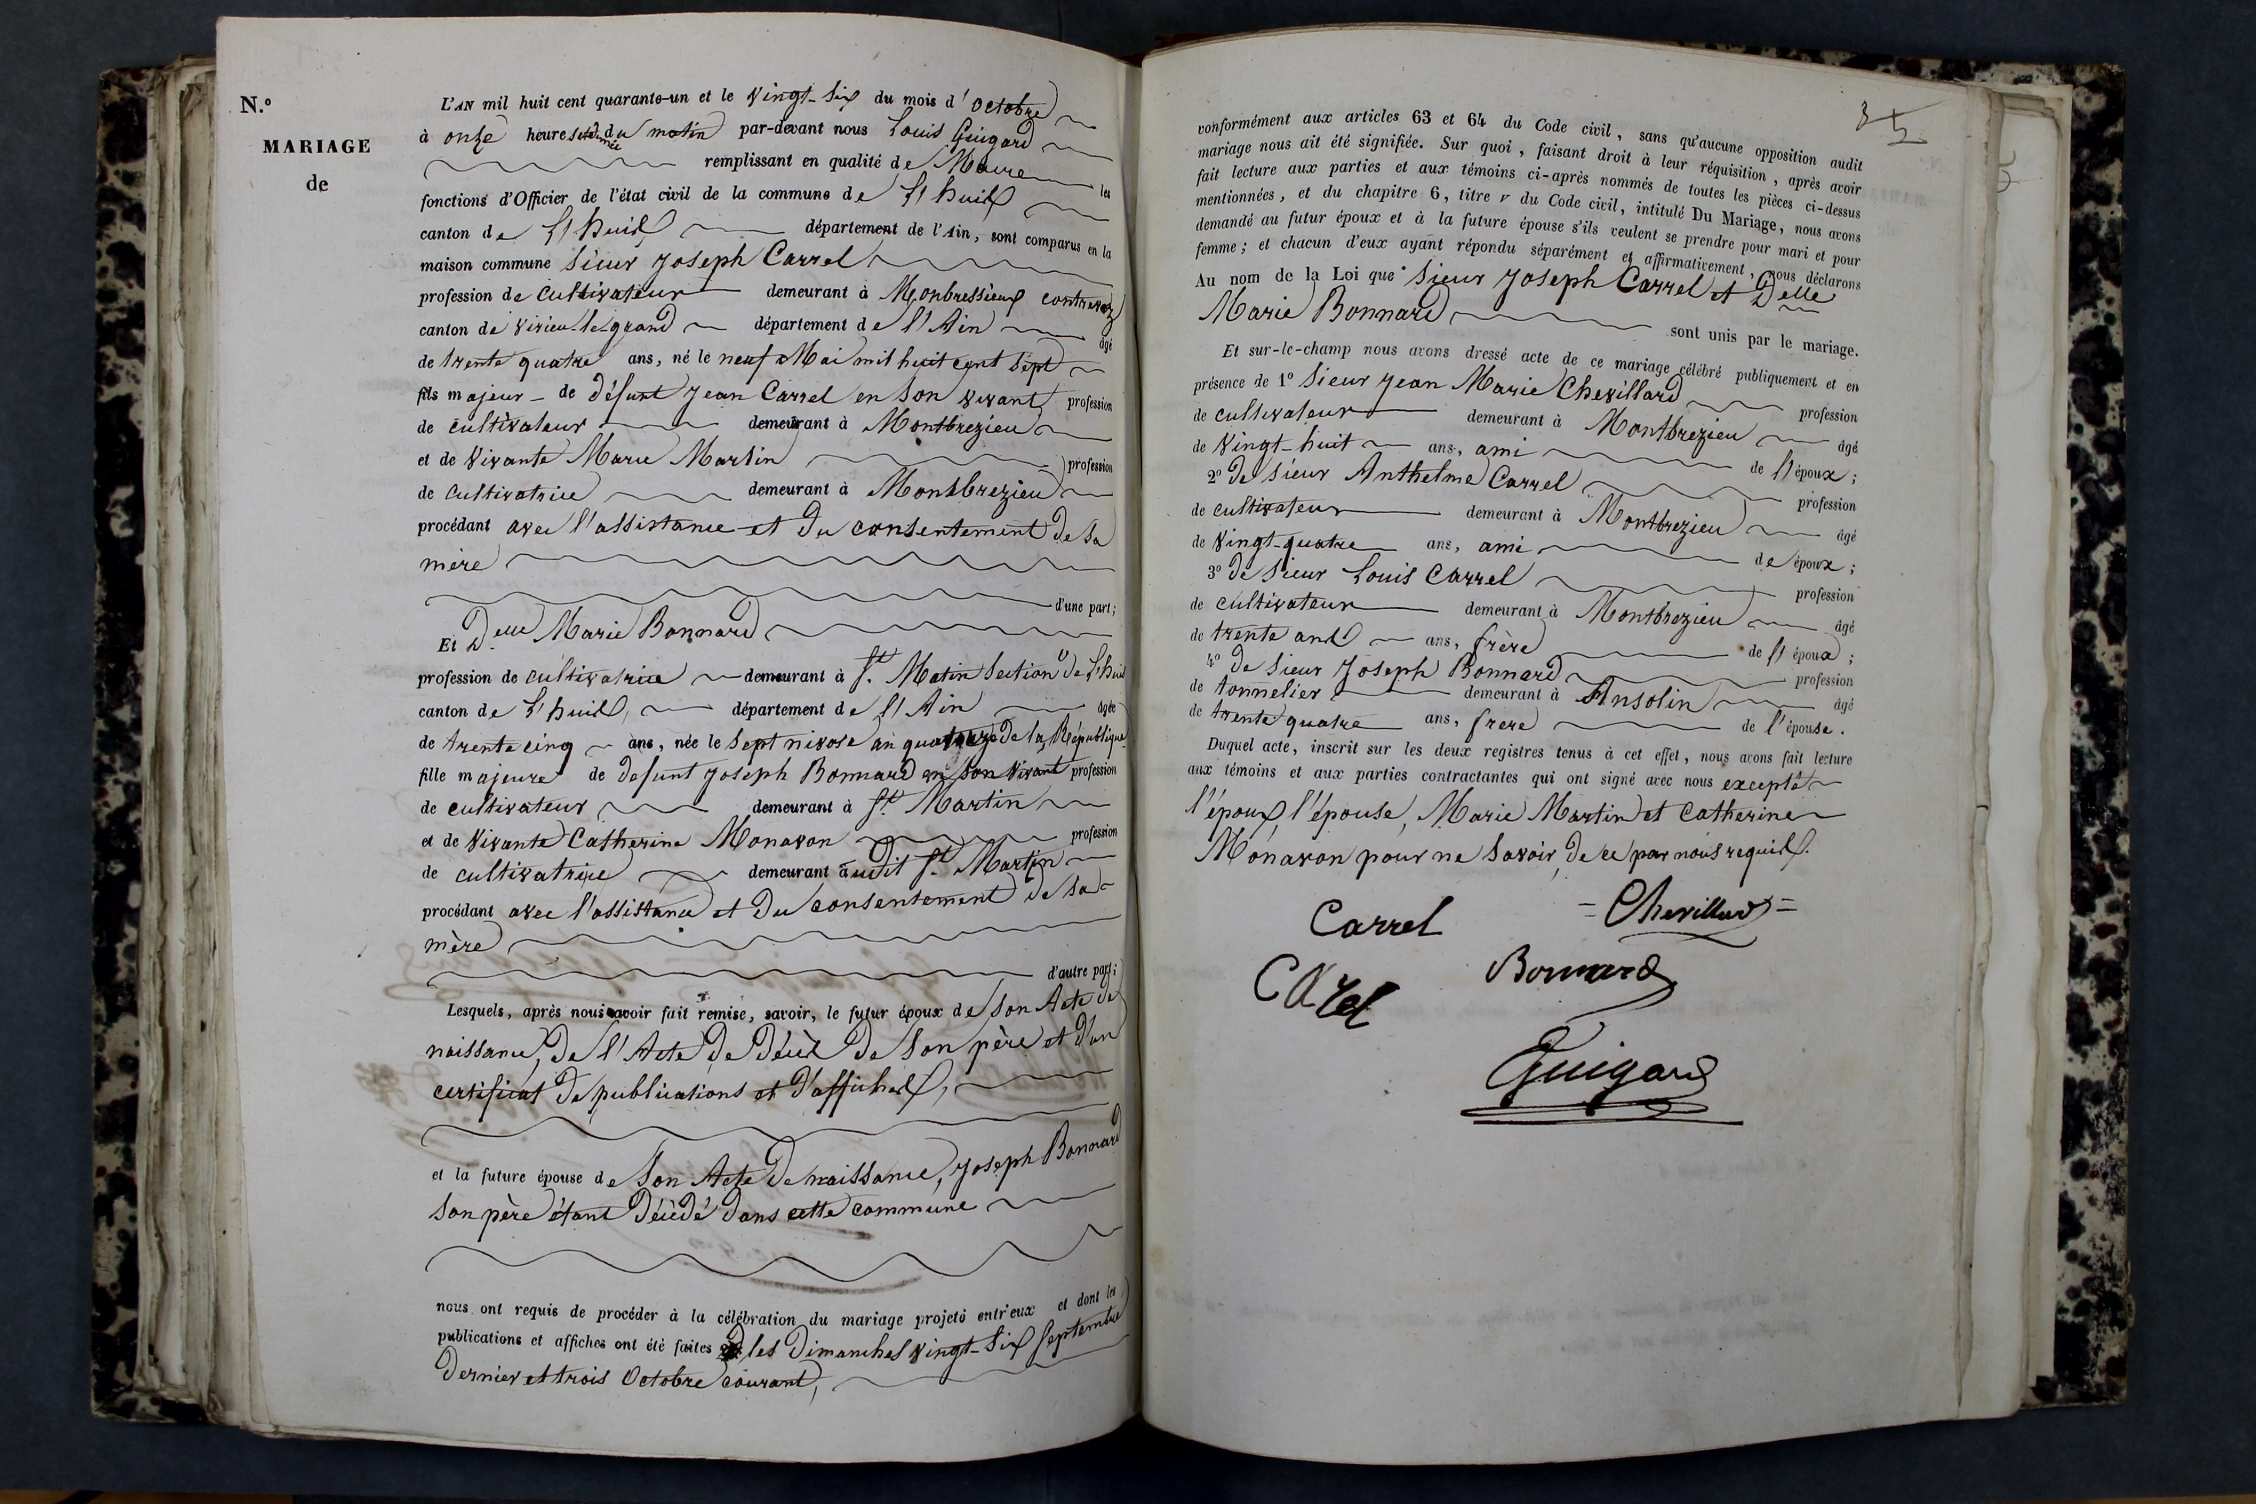 N.º
MARIAGE
de
L'AN mil huit cent quarante-un et le vingt-six du mois d'octobre
à onze heures et demie du matin par-devant nous Louis Guigard
remplissant en qualité de Maire les
fonctions d'Officier de l'état civil de la commune de L'huis
canton de L'huis département de l'Ain, sont comparus en la
maison commune sieur Joseph Carrel
profession de cultivateur demeurant à Monbressieux contrevoz
canton de virieu le grand département de l'Ain âgé
de trente quatre ans, né le neuf Mai mil huit cent sept
fils majeur de défunt Jean Carrel en son vivant profession
de cultivateur demeurant à Montbrezieu
et de vivante Marie Martin profession
de cultivatrice demeurant à Montbrezieu
procédant avec l'assistance et du consentement de sa
mère
d'une part;
Et Delle Marie Bonnard
profession de cultivatrice demeurant à St. Matin section de L'huis
canton de L'huis, département de l'Ain âgée
de trente cinq ans, née le sept nivose an quatorze de la République
fille majeure de defunt Joseph Bonnard en son vivant profession
de cultivateur demeurant à St. Martin
et de vivante Catherine Monavon profession
de cultivatrice demeurant audit St. Martin
procédant avec l'assistance et du consentement de sa
mère
d'autre part;
Lesquels, après nous avoir fait remise, savoir, le futur époux de son Acte de
naissance, de l'Acte de décès de son père et d'un
certificat de publications et d'affiches,
et la future épouse de son Acte de naissance, Joseph Bonnard
son père étant décédé dans cette commune
nous ont requis de procéder à la célébration du mariage projeté entr'eux et dont les
publications et affiches ont été faites les dimanches vingt-six septembre
dernier et trois octobre courant,
35
conformément aux articles 63 et 64 du Code civil, sans qu'aucune opposition audit
mariage nous ait été signifiée. Sur quoi, faisant droit à leur réquisition, après avoir
fait lecture aux parties et aux témoins ci-après nommés de toutes les pièces ci-dessus
mentionnées, et du chapitre 6, titre v du Code civil, intitulé Du Mariage, nous avons
demandé au futur époux et à la future épouse s'ils veulent se prendre pour mari et pour
femme; et chacun d'eux ayant répondu séparément et affirmativement, nous déclarons
Au nom de la Loi que sieur Joseph Carrel et Delle
Marie Bonnard sont unis par le mariage.
Et sur-le-champ nous avons dressé acte de ce mariage célébré publiquement et en
présence de 1º sieur Jean Marie Chevillard profession
de cultivateur demeurant à Montbrezieu âgé
de vingt-huit ans, ami de l'époux;
2º de sieur Anthelme Carrel profession
de cultivateur demeurant à Montbrezieu âgé
de vingt-quatre ans, ami de époux;
3º de sieur Louis Carrel profession
de cultivateur demeurant à Montbrezieu âgé
de trente ans ans, frère de l'époux;
4º de sieur Joseph Bonnard profession
de tonnelier demeurant à Ansolin âgé
de trente quatre ans, frere de l'épouse.
Duquel acte, inscrit sur les deux registres tenus à cet effet, nous avons fait lecture
aux témoins et aux parties contractantes qui ont signé avec nous excepté
l'époux, l'épouse, Marie Martin et Catherine
Monavon pour ne savoir, de ce par nous requis.
Carrel
Chevillard
Carel
Bonnard
Guigard